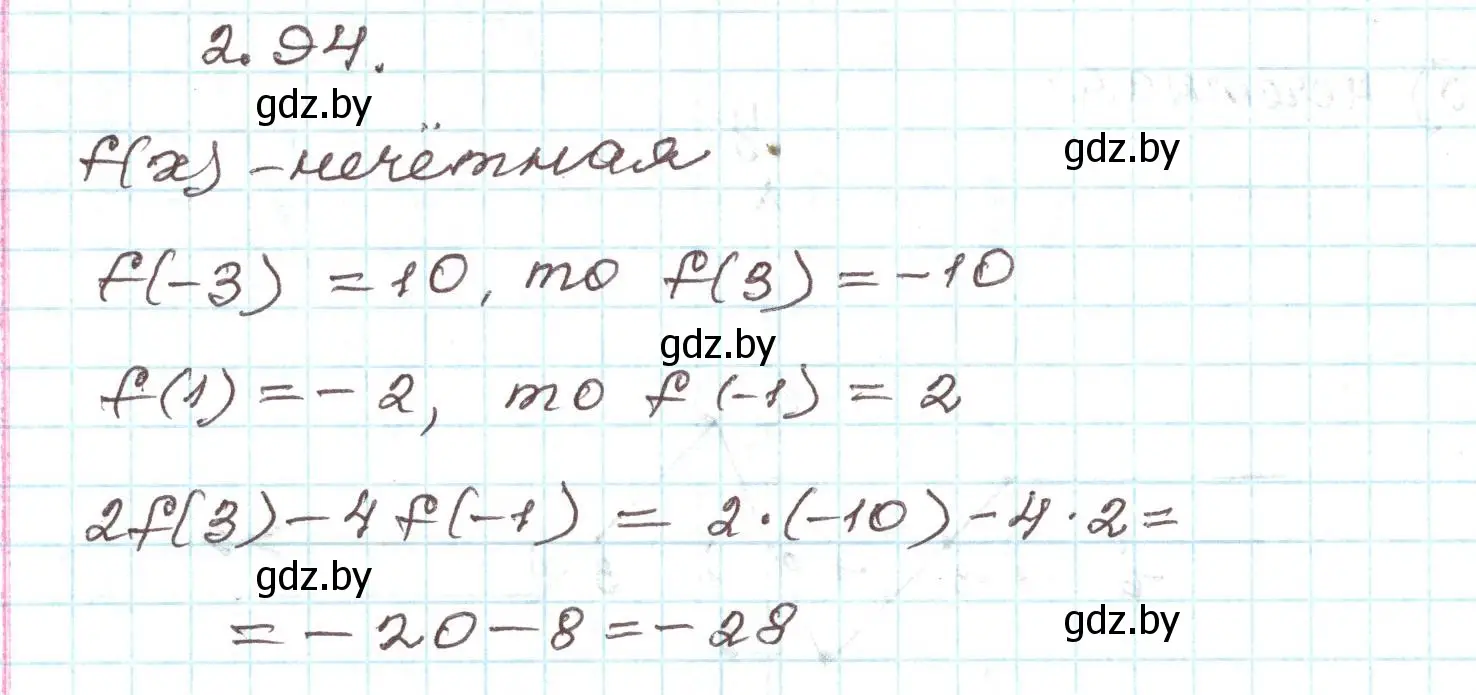 2.94.
gdz.by
f(x) – нечётная
gdz.by
f(-3) = 10, то f(3) = -10
gdz.by
f(1) = -2, то f(-1) = 2
2f(3) - 4f(-1) = 2·(-10) - 4·2 =
gdz.by
= -20 - 8 = -28
gdz.by